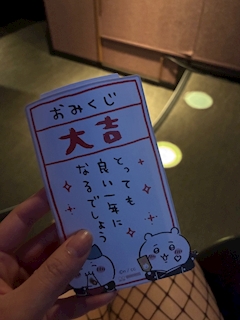 おみくじ
大吉
とっても
良い一年に
なるでしょう